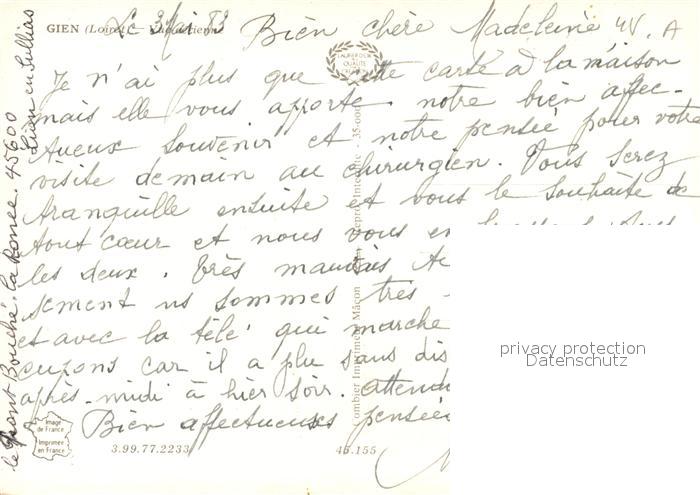 GIEN (Loiret)
Le 3 Mai 83
Bien chère Madeleine
Je n'ai plus que cette carte à la maison
mais elle vous apporte notre bien affec-
tueux souvenir et notre pensée pour votre
visite demain au chirurgien. Vous serez
tranquille ensuite et vous le souhaite de
tout cœur et nous vous
les deux. Très mauvais
sement ns sommes très
et avec la télé qui marche
car il a plu sans
après-midi à hier soir.
Bien affectueuses pensées
le Pont Bouché. La Ronce. 45600
en Sullias
35-000
Combier Imprimeur Mâcon
Image
de France
Imprimée
en France
3.99.77.2233
45.155
privacy protection
Datenschutz